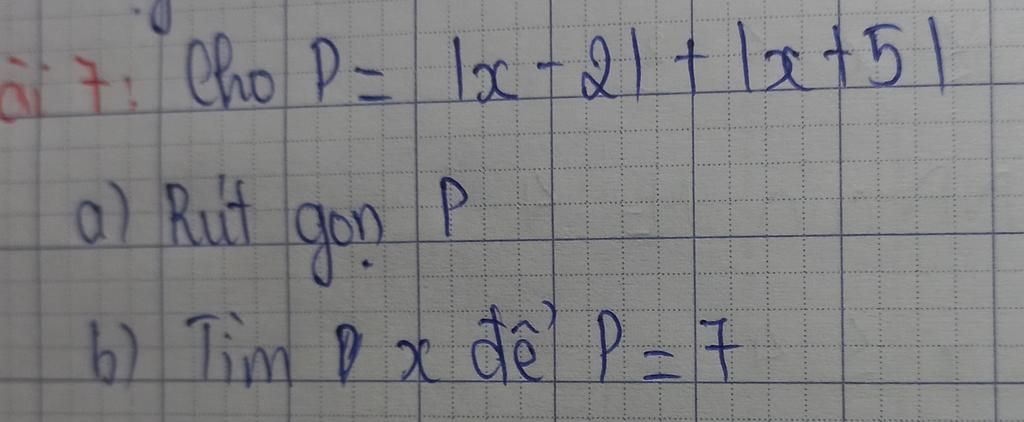 ài 7: Cho P = |x - 2| + |x + 5|
a) Rút gọn P
b) Tìm x để P = 7